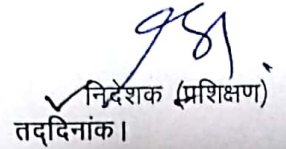 निदेशक (प्रशिक्षण)
तद्दिनांक।